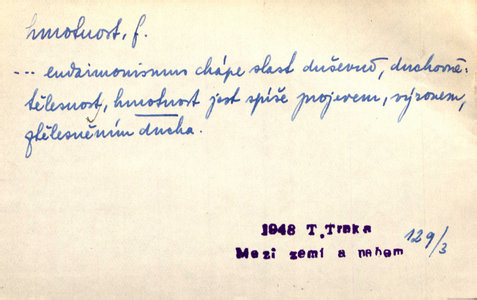 hmotnost, f.
... eudaimonismus chápe slast duševně, duchovně:
tělesnost, hmotnost jest spíše projevem, výronem,
ztělesněním ducha.
1948 T. Trnka
Mezi zemí a nebem 129/3